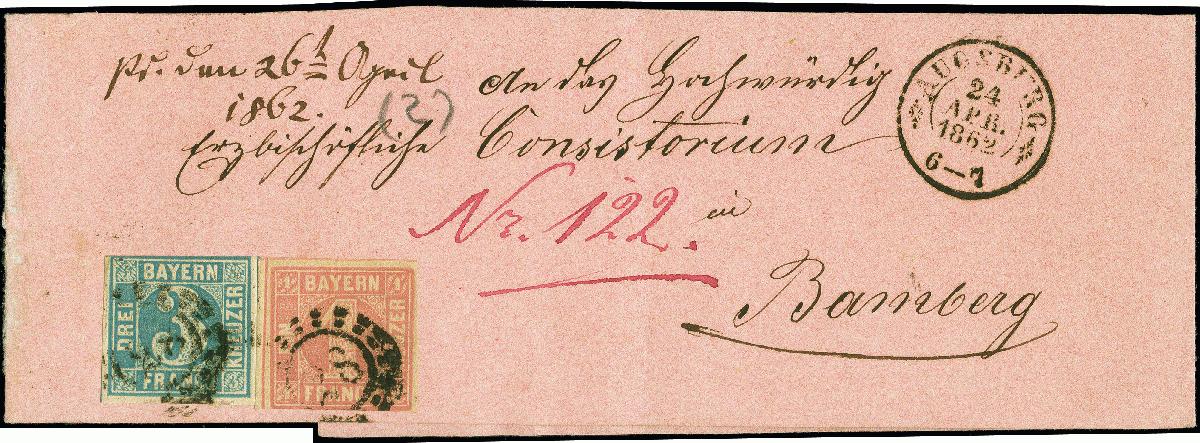 pr. den 26t April
1862.
(2)
An das Hochwürdig
Erzbischöfliche Consistorium
Nr. 122.
in
Bamberg
AUGSBURG
24
APR.
1862
6–7
BAYERN
DREI
KREUZER
FRANCO
3
BAYERN
1
1
KREUZER
FRANCO